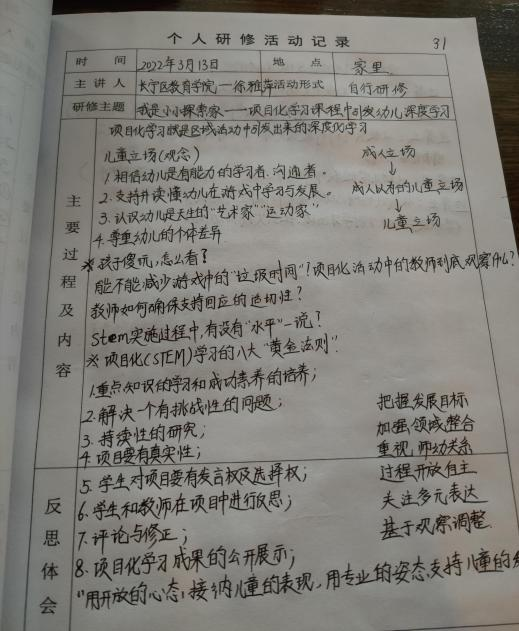 个人研修活动记录
31
时间 2022年3月13日 地点 家里
主讲人 长宁区教育学院——徐雅萍 活动形式 自行研修
研修主题 我是小小探索家——项目化学习课程中引发幼儿深度学习
主要过程及内容
项目化学习就是区域活动中引发出来的深度化学习
儿童立场(观念) 成人立场
↓
1.相信幼儿是有能力的学习者、沟通者。
2.支持并读懂幼儿在游戏中学习与发展。 成人以为的儿童立场
↓
3.认识幼儿是天生的"艺术家""运动家" 儿童立场
4.尊重幼儿的个体差异
※孩子傻玩,怎么看?
能不能减少游戏中的"垃圾时间"?项目化活动中的教师到底观察什么?
教师如何确保支持回应的适切性?
Stem实施过程中,有没有"水平"一说?
※项目化(STEM)学习的八大"黄金法则":
1.重点知识的学习和成功素养的培养;
2.解决一个有挑战性的问题; 把握发展目标
3.持续性的研究; 加强领域整合
4.项目要有真实性; 重视师幼关系
反思体会
5.学生对项目要有发言权及选择权; 过程开放自主
6.学生和教师在项目中进行反思; 关注多元表达
7.评论与修正; 基于观察调整.
8.项目化学习成果的公开展示;
"用开放的心态,接纳儿童的表现,用专业的姿态支持儿童的